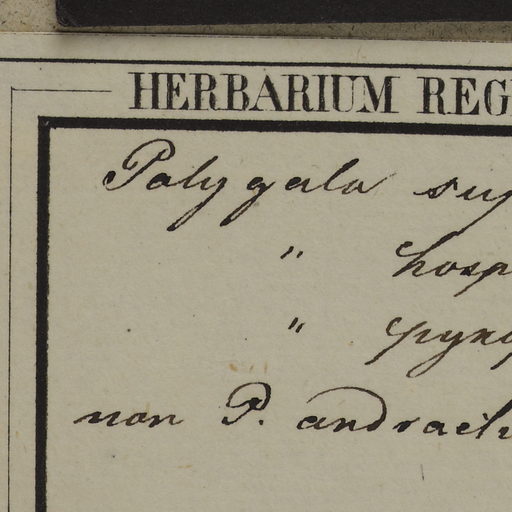 HERBARIUM REG
Polygala sup
" hosp
" pyro
non P. andrach